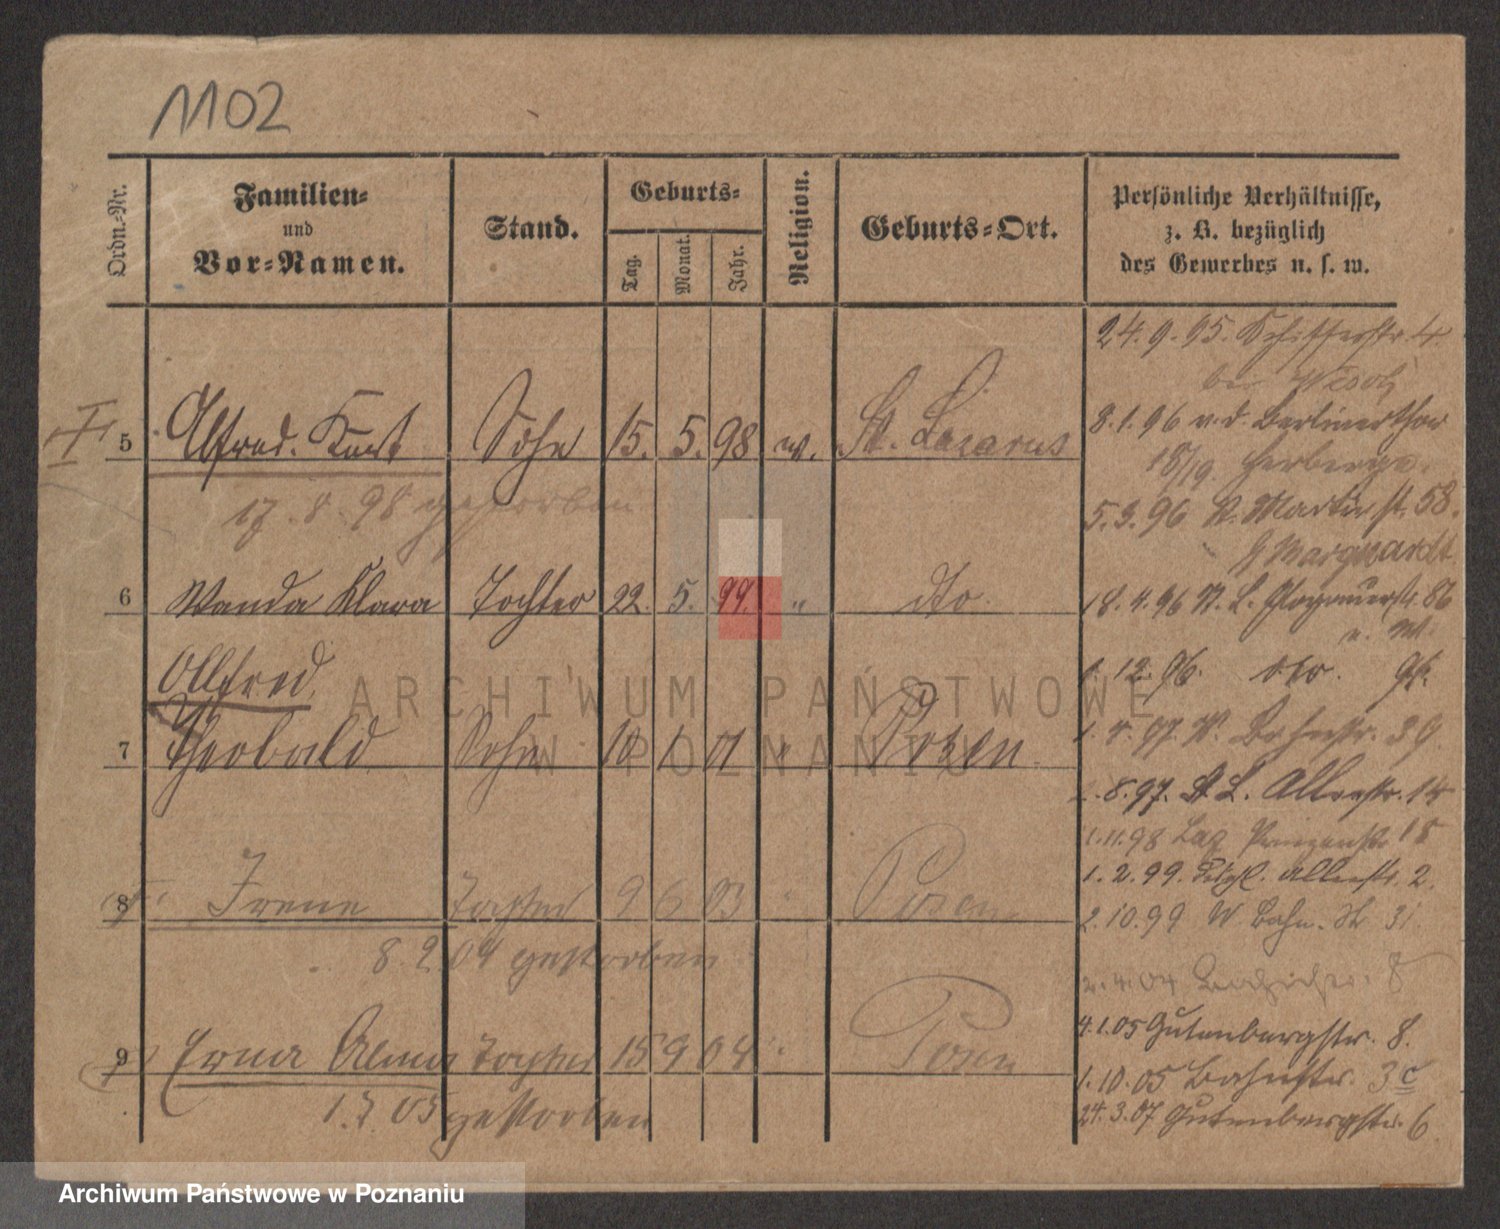 1102
Ordn.-Nr.
Familien-
und
Vor-Namen.
Stand.
Geburts-
Tag.
Monat.
Jahr.
Religion.
Geburts-Ort.
Persönliche Verhältnisse,
z. B. bezüglich
des Gewerbes u. s. w.
5 Alfred. Kurt Sohn 15. 5. 98 ev. St. Lazarus
17. 8. 98 gestorben
6 Wanda Klara Tochter 22. 5. 99. " dto.
Allfred
7 Theobald Sohn 10 1 01 " Posen.
8 Irene Tochter 9 6 03 " Posen
8.2.04 gestorben
9 Erna Alma Tochter 15 9 04 " Posen
1.7.05 gestorben
24.9.95. Schifferstr. 4.
bei
8.1.96 v. d. Berlinerthor
18/19. Herberge.
5.3.96 St. Martinstr. 58.
Marquardt
18.4.96 St. L. Glogauerstr. 86
1.12.96. dto.
97. Bahnstr. 39.
8.97. St. L. 14
1.11.98 Laz Prinzenstr 18
1.2.99. 2.
2.10.99 W. Bahn. Str 31.
2.4.04 8
4.1.05 Gutenbergstr. 8.
1.10.05 Bahnstr. 3c
24.3.07 Gutenbergstr. 6
ARCHIWUM PAŃSTWOWE
W POZNANIU
Archiwum Państwowe w Poznaniu